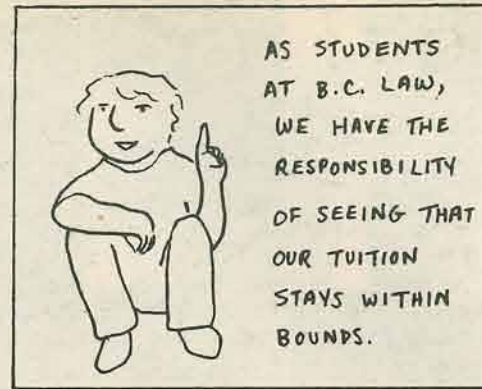 AS STUDENTS
AT B.C. LAW,
WE HAVE THE
RESPONSIBILITY
OF SEEING THAT
OUR TUITION
STAYS WITHIN
BOUNDS.